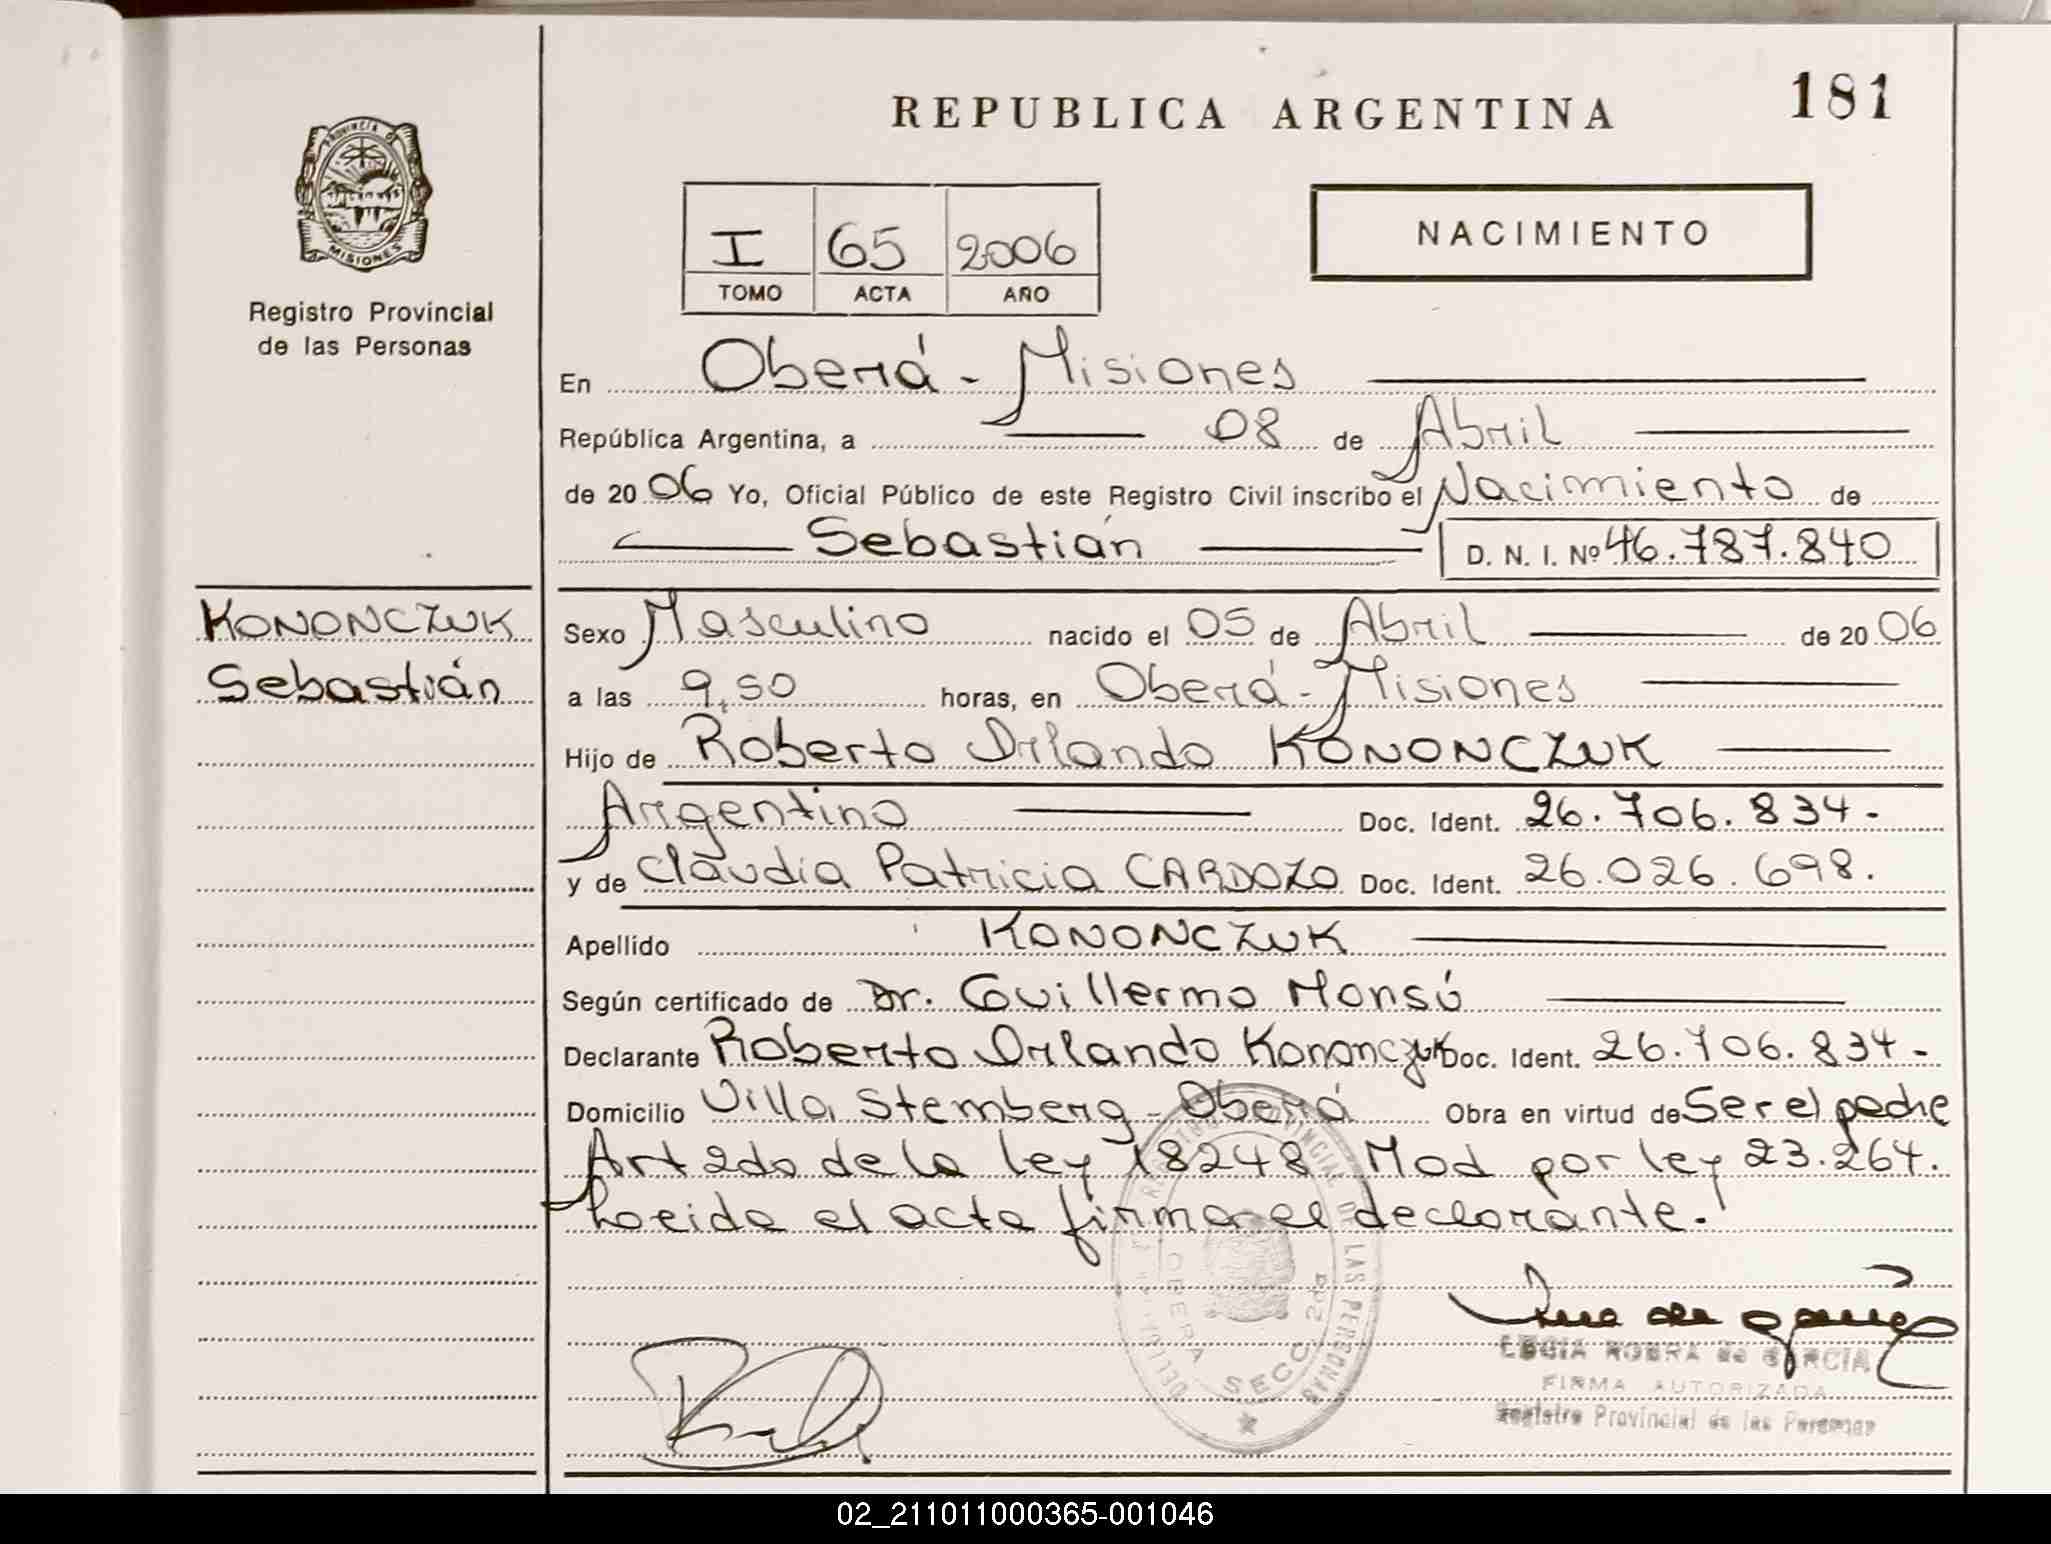 REPUBLICA ARGENTINA
181
PROVINCIA DE
MISIONES
Registro Provincial
de las Personas
I 65 2006
TOMO ACTA AÑO
NACIMIENTO
En Oberá - Misiones
República Argentina, a 08 de Abril
de 2006 Yo, Oficial Público de este Registro Civil inscribo el Nacimiento de
Sebastián D. N. I. Nº 46.787.840
KONONCZUK
Sebastián
Sexo Masculino nacido el 05 de Abril de 2006
a las 9,50 horas, en Oberá - Misiones
Hijo de Roberto Orlando KONONCZUK
Argentino Doc. Ident. 26.706.834-
y de Claudia Patricia CARDOZO Doc. Ident. 26.026.698.
Apellido KONONCZUK
Según certificado de Dr. Guillermo Monsú
Declarante Roberto Orlando Kononczuk Doc. Ident. 26.706.834-
Domicilio Villa Stemberg - Oberá Obra en virtud de Ser el padre
Art 2do de la ley 18248 Mod por ley 23.264.
Leida el acta firma el declarante.
REGISTRO PROVINCIAL DE LAS PERSONAS
OBERA SECC. 2da
de GARCIA
FIRMA AUTORIZADA
Registro Provincial de las Personas
02_211011000365-001046